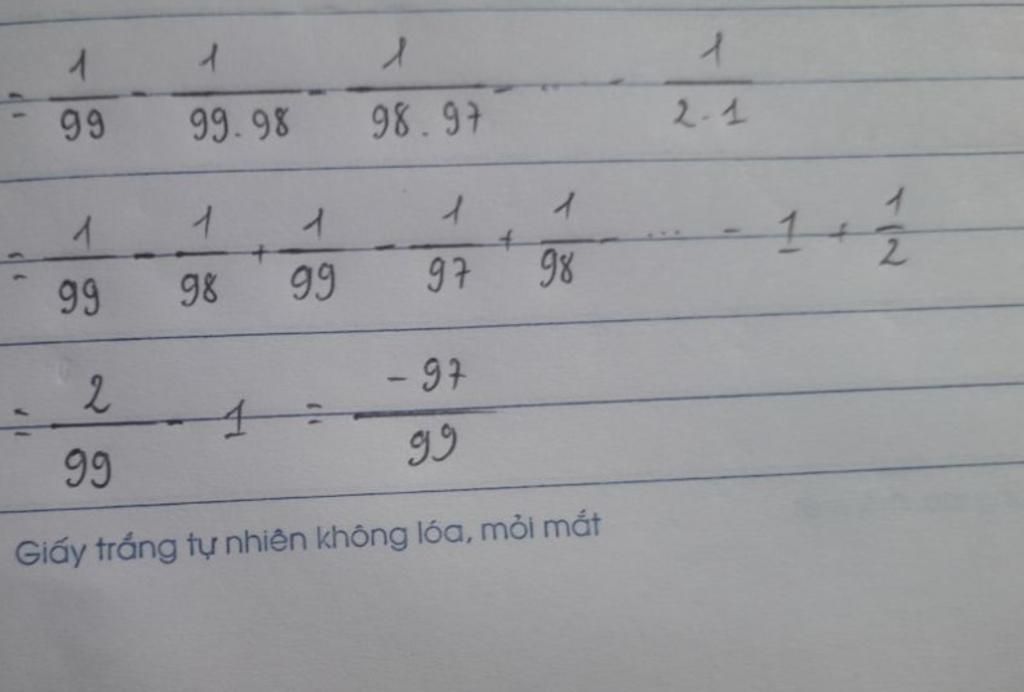 = 1/99 - 1/99.98 - 1/98.97 - ... - 1/2.1
= 1/99 - 1/98 + 1/99 - 1/97 + 1/98 - ... - 1 + 1/2
= 2/99 - 1 = -97/99
Giấy trắng tự nhiên không lóa, mỏi mắt